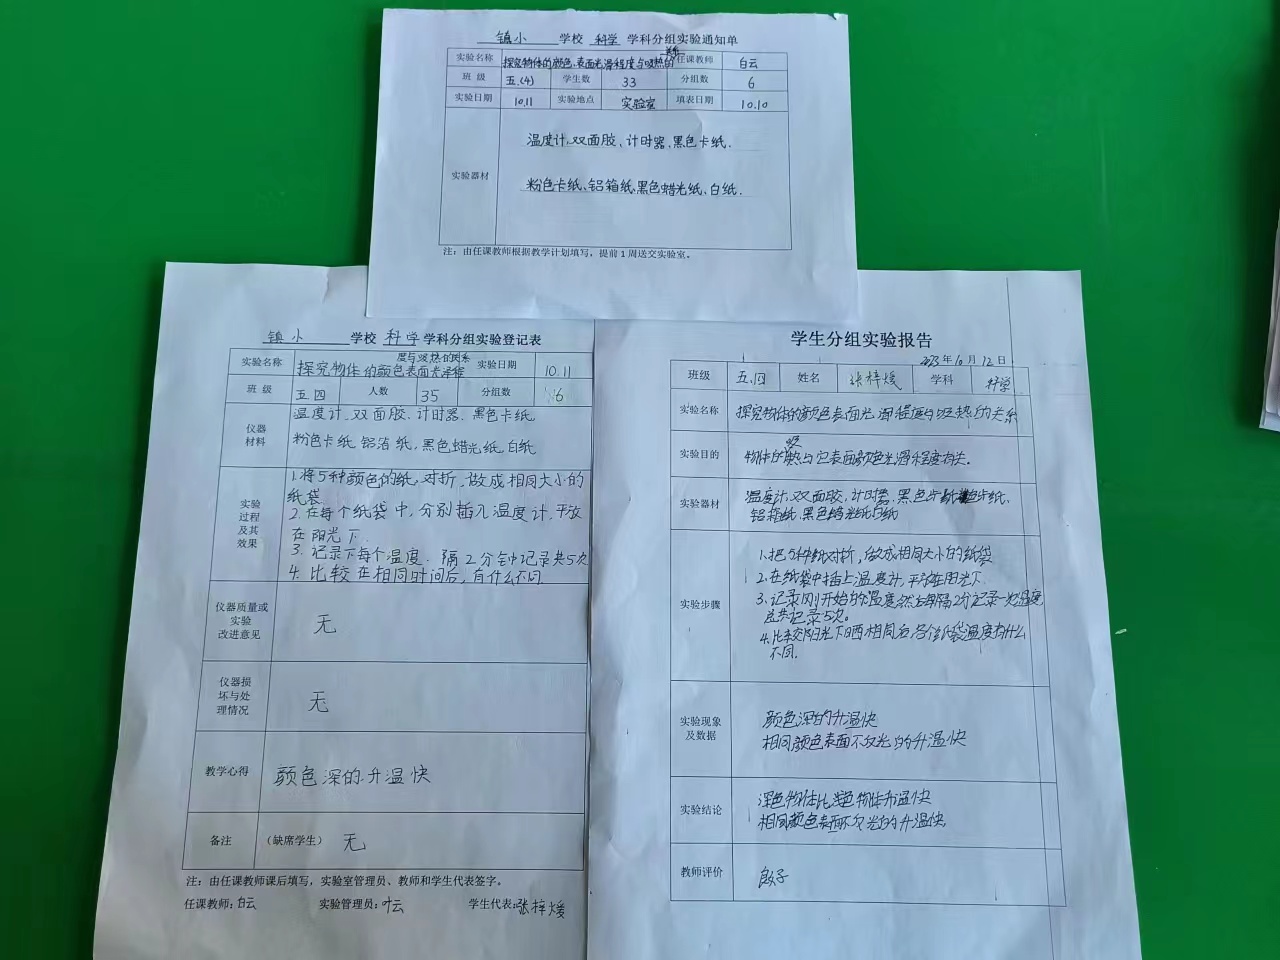 镇小 学校 科学 学科分组实验通知单
实验名称 探究物体的颜色、表面光滑程度与吸热的关系 任课教师 白云
班 级 五.(4) 学生数 33 分组数 6
实验日期 10.11 实验地点 实验室 填表日期 10.10
实验器材
温度计、双面胶、计时器、黑色卡纸、
粉色卡纸、铝箱纸、黑色蜡光纸、白纸.
注：由任课教师根据教学计划填写，提前1周送交实验室。
镇小 学校 科学 学科分组实验登记表
实验名称 探究物体的颜色表面光滑程度与吸热的关系 实验日期 10.11
班 级 五四 人数 35 分组数 6
仪器材料
温度计、双面胶、计时器、黑色卡纸、
粉色卡纸、铝箔纸、黑色蜡光纸、白纸
实验过程及其效果
1.将5种颜色的纸，对折，做成相同大小的
纸袋.
2.在每个纸袋中，分别插入温度计，平放
在阳光下.
3.记录下每个温度.隔2分钟记录共5次
4.比较在相同时间后，有什么不同
仪器质量或实验改进意见 无
仪器损坏与处理情况 无
教学心得 颜色深的升温快
备注 （缺席学生） 无
注：由任课教师课后填写，实验室管理员、教师和学生代表签字。
任课教师:白云 实验管理员:叶云 学生代表:张梓煖
学生分组实验报告
2023年10月12日
班级 五.四 姓名 张梓煖 学科 科学
实验名称 探究物体的颜色表面光滑程度与吸热的关系
实验目的 物体的吸热与它表面颜色光滑程度有关。
实验器材
温度计、双面胶、计时器、黑色卡纸 色卡纸、
铝箱纸、黑色蜡光纸白纸
实验步骤
1.把5种纸对折，做成相同大小的纸袋
2.在纸袋中插上温度计，平放在阳光下
3.记录刚开始的温度，然后每隔2分记录一次温度
总共记录5次。
4.比较阳光下晒相同后各个纸袋温度有什么
不同.
实验现象及数据
颜色深的升温快
相同颜色表面不反光的升温快
实验结论
深色物体比浅色物体升温快
相同颜色表面不反光的升温快
教师评价